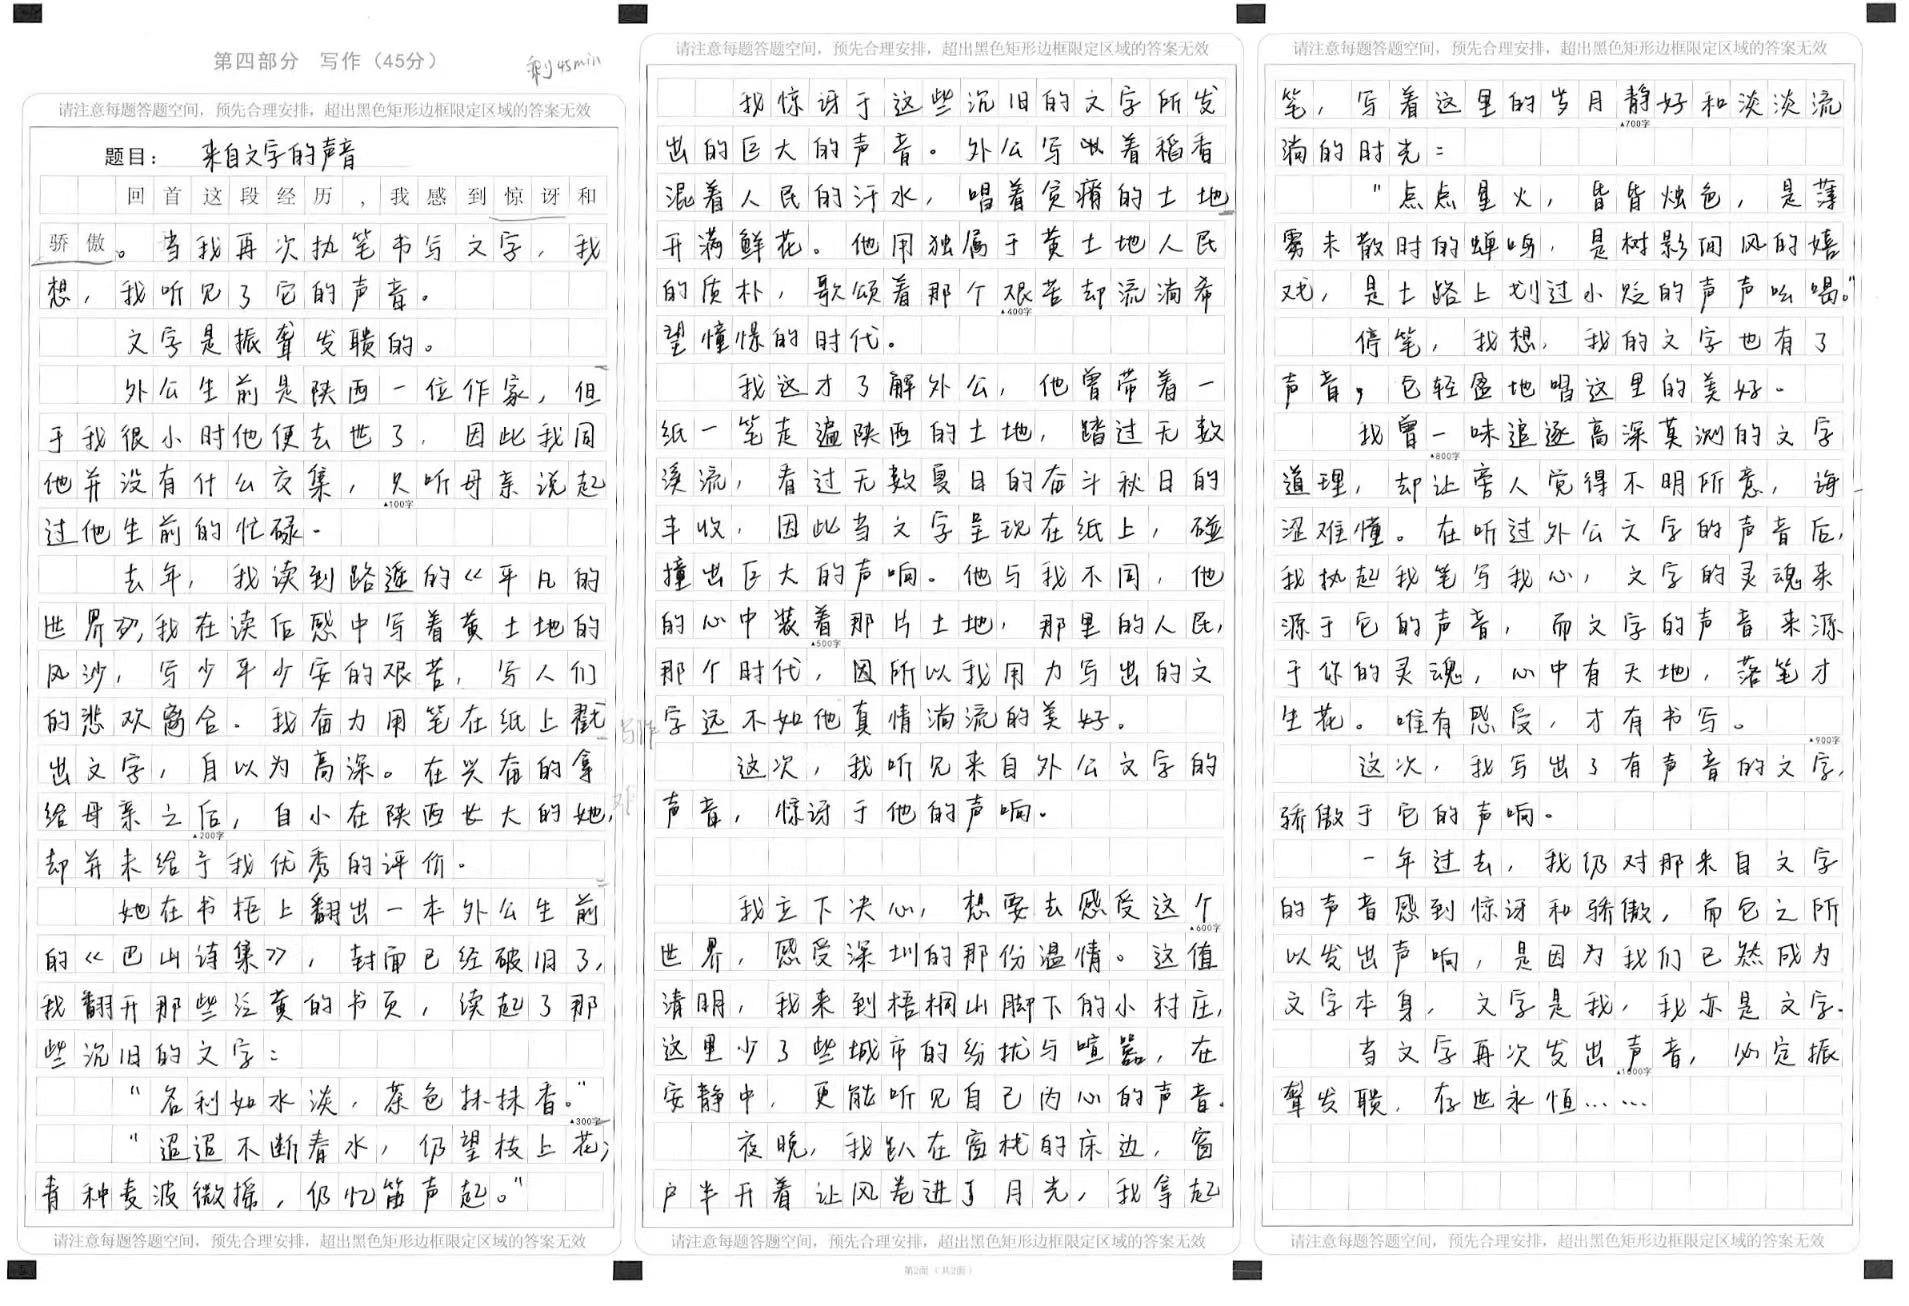 第四部分 写作（45分）
剩45min
请注意每题答题空间，预先合理安排，超出黑色矩形边框限定区域的答案无效
题目： 来自文字的声音
回首这段经历，我感到惊讶和
骄傲。当我再次执笔书写文字，我
想，我听见了它的声音。
文字是振聋发聩的。
外公生前是陕西一位作家，但
于我很小时他便去世了，因此我同
他并没有什么交集，只听母亲说起
▲100字
过他生前的忙碌。
去年，我读到路遥的《平凡的
世界》，我在读后感中写着黄土地的
风沙，写少平少安的艰苦，写人们
的悲欢离合。我奋力用笔在纸上戳
出文字，自以为高深。在兴奋的拿
给母亲之后，自小在陕西长大的她，
▲200字
却并未给予我优秀的评价。
她在书柜上翻出一本外公生前
的《巴山诗集》，封面已经破旧了，
我翻开那些泛黄的书页，读起了那
些沉旧的文字：
“名利如水淡，茶色抹抹香。”
▲300字
“迢迢不断春水，仍望枝上花；
青种麦波微摇，仍忆笛声起。”
请注意每题答题空间，预先合理安排，超出黑色矩形边框限定区域的答案无效
请注意每题答题空间，预先合理安排，超出黑色矩形边框限定区域的答案无效
我惊讶于这些沉旧的文字所发
出的巨大的声音。外公写着稻香
混着人民的汗水，唱着贫瘠的土地
开满鲜花。他用独属于黄土地人民
的质朴，歌颂着那个艰苦却流淌希
▲400字
望憧憬的时代。
我这才了解外公，他曾带着一
纸一笔走遍陕西的土地，踏过无数
溪流，看过无数夏日的奋斗秋日的
丰收，因此当文字呈现在纸上，碰
撞出巨大的声响。他与我不同，他
的心中装着那片土地，那里的人民，
▲500字
那个时代，因所以我用力写出的文
字远不如他真情淌流的美好。
这次，我听见来自外公文字的
声音，惊讶于他的声响。
我立下决心，想要去感受这个
▲600字
世界，感受深圳的那份温情。这值
清明，我来到梧桐山脚下的小村庄，
这里少了些城市的纷扰与喧嚣，在
安静中，更能听见自己内心的声音。
夜晚，我趴在窗栈的床边，窗
户半开着让风卷进了月光，我拿起
请注意每题答题空间，预先合理安排，超出黑色矩形边框限定区域的答案无效
第2面（共2面）
请注意每题答题空间，预先合理安排，超出黑色矩形边框限定区域的答案无效
笔，写着这里的岁月静好和淡淡流
▲700字
淌的时光：
“点点星火，皆皆烛色，是薄
雾未散时的蝉鸣，是树影间风的嬉
戏，是土路上划过小贩的声声吆喝。”
停笔，我想，我的文字也有了
声音，它轻盈地唱这里的美好。
我曾一味追逐高深莫测的文字
▲800字
道理，却让旁人觉得不明所意，诲
涩难懂。在听过外公文字的声音后，
我执起我笔写我心，文字的灵魂来
源于它的声音，而文字的声音来源
于你的灵魂，心中有天地，落笔才
生花。唯有感受，才有书写。
▲900字
这次，我写出了有声音的文字，
骄傲于它的声响。
一年过去，我仍对那来自文字
的声音感到惊讶和骄傲，而它之所
以发出声响，是因为我们已然成为
文字本身，文字是我，我亦是文字。
当文字再次发出声音，必定振
▲1000字
聋发聩，存世永恒……
请注意每题答题空间，预先合理安排，超出黑色矩形边框限定区域的答案无效